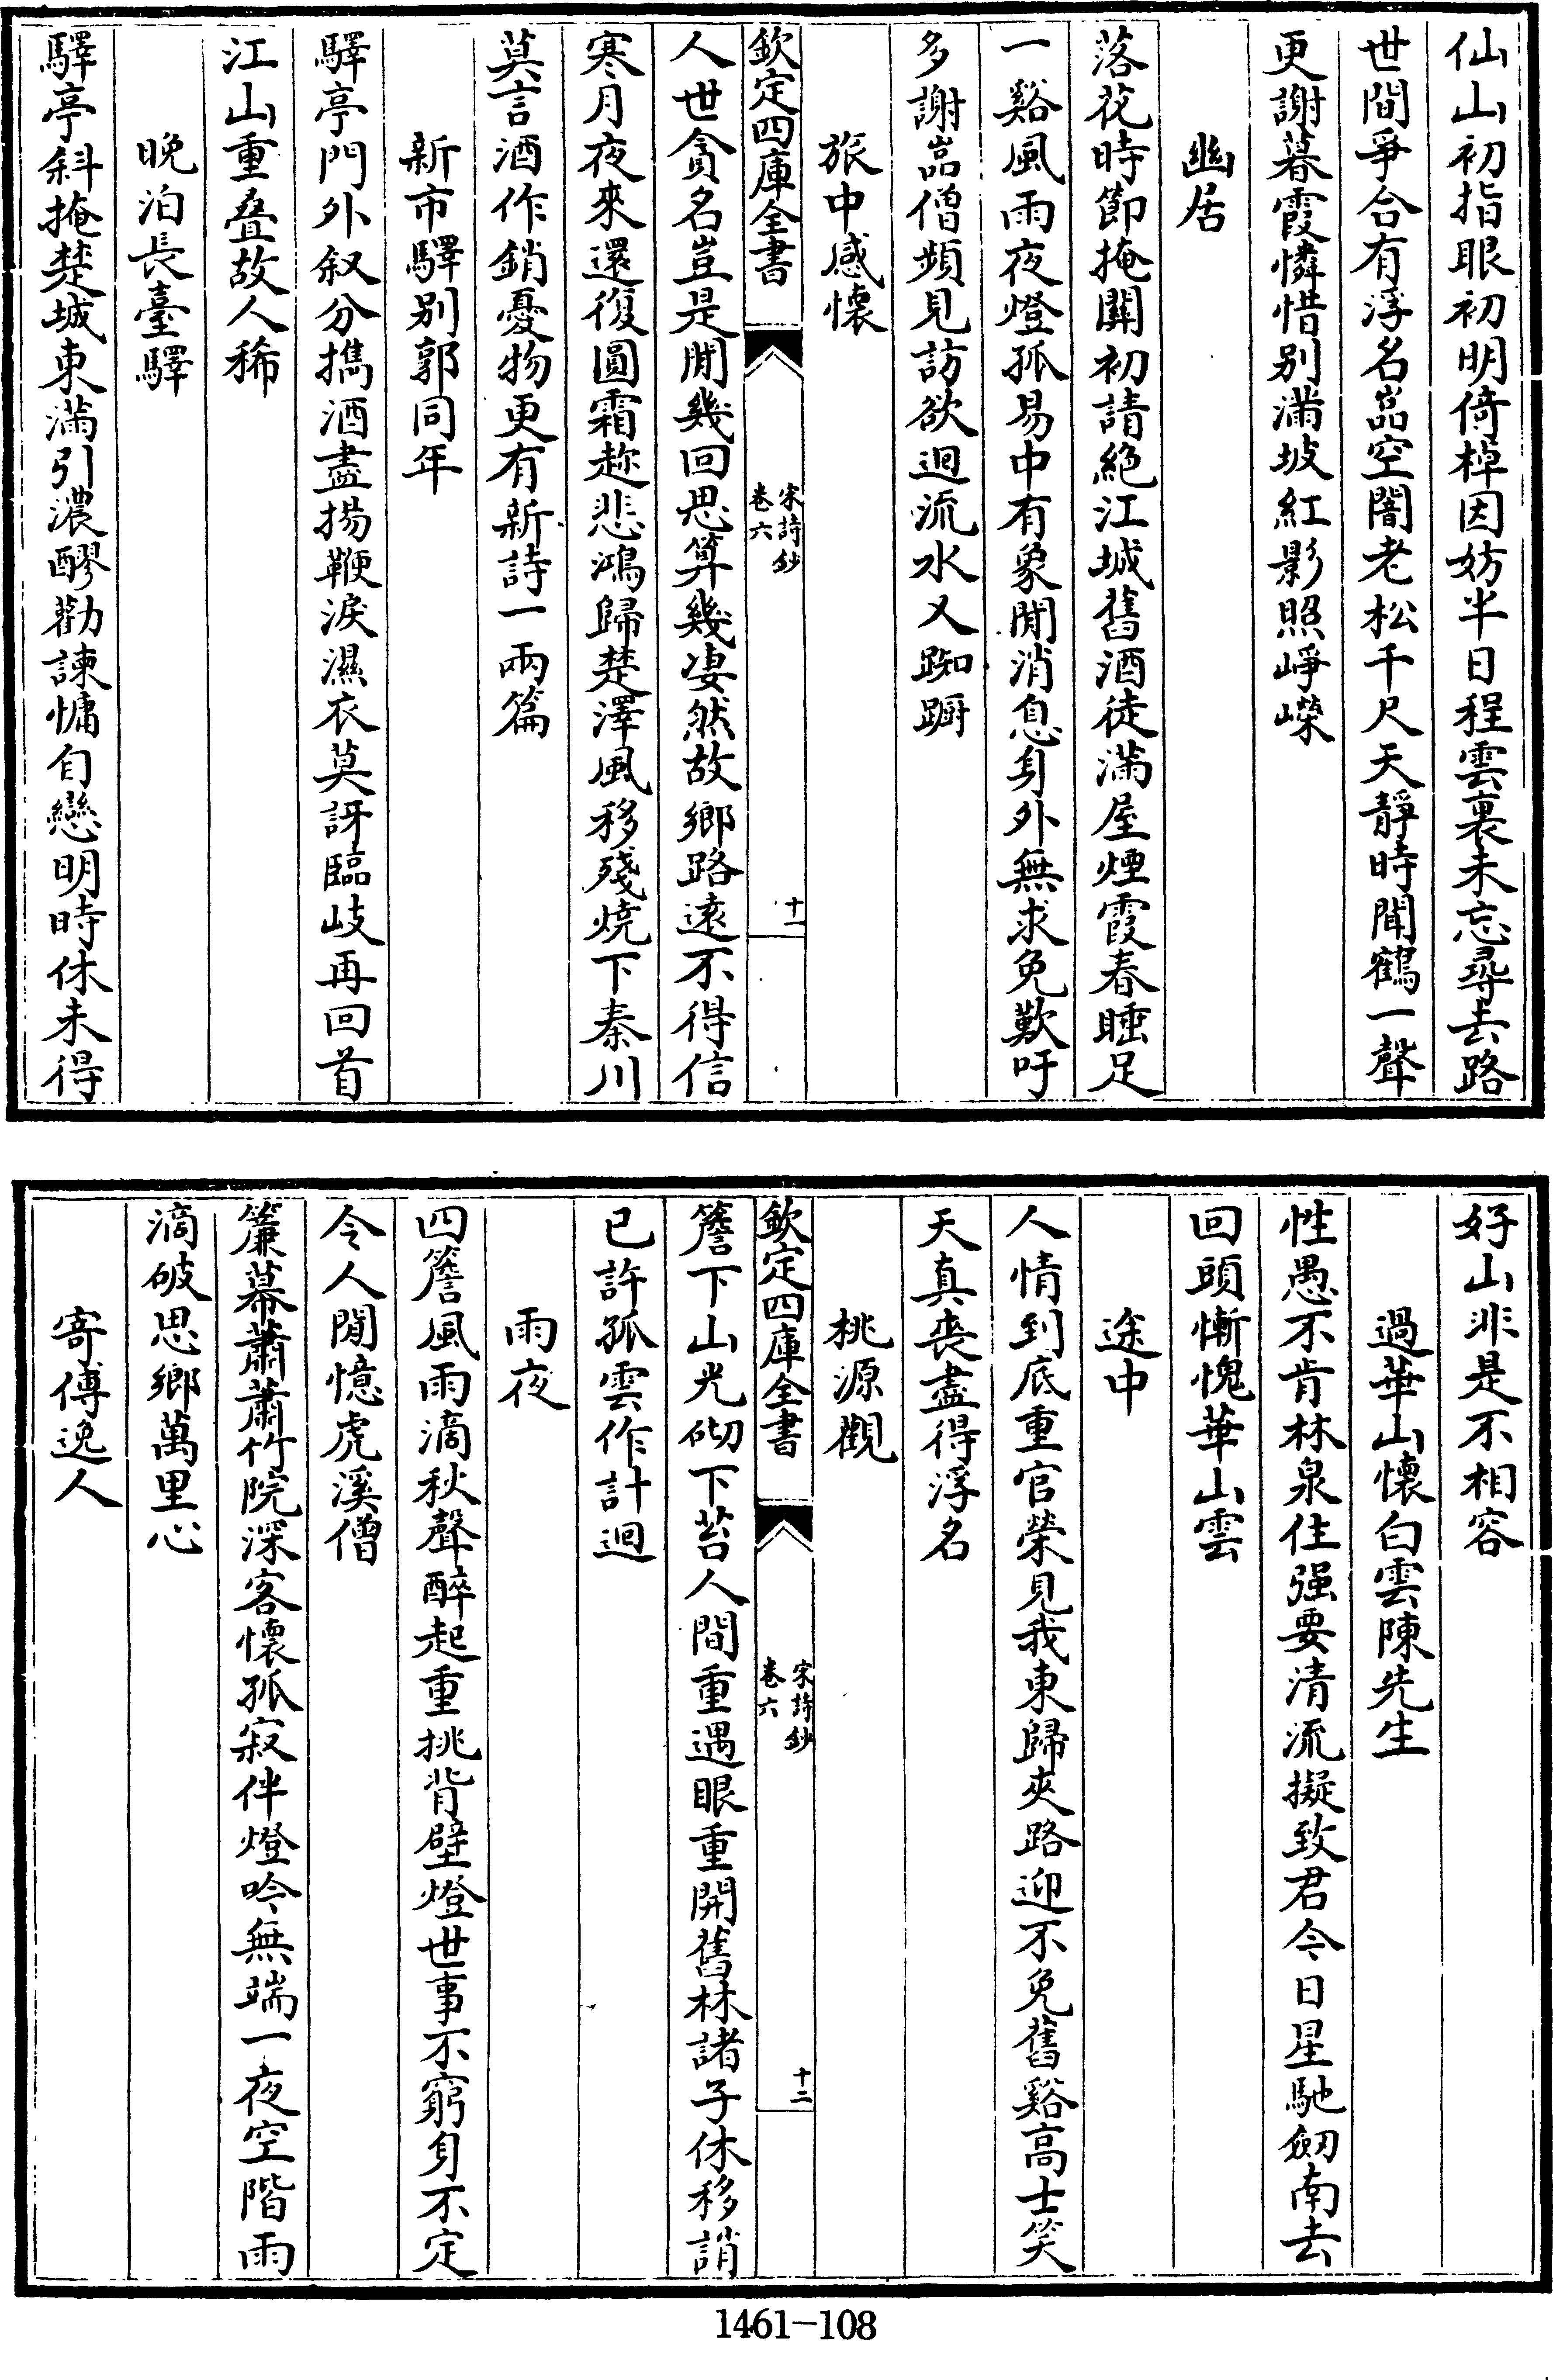 仙山初指眼初明倚棹因妨半日程雲裏未忘尋去路
世間爭合有浮名嵓空闇老松千尺天靜時聞鶴一聲
更謝暮霞憐惜别滿坡紅影照崢嶸
幽居
落花時節掩關初請絶江城舊酒徒滿屋煙霞春睡足
一谿風雨夜燈孤易中有象閒消息身外無求免歎吁
多謝嵓僧頻見訪欲迴流水又踟蹰
旅中感懷
欽定四庫全書
宋詩鈔
卷六
十一
人世貪名豈是閒幾回思算幾凄然故鄉路遠不得信
寒月夜來還復圓霜趂悲鴻歸楚澤風移殘燒下秦川
莫言酒作銷憂物更有新詩一兩篇
新市驛别郭同年
驛亭門外叙分攜酒盡揚鞭淚濕衣莫訝臨岐再回首
江山重叠故人稀
晚泊長臺驛
驛亭斜掩楚城東滿引濃醪勸諫慵自戀明時休未得
好山非是不相容
過華山懷白雲陳先生
性愚不肯林泉住强要清流擬致君今日星馳劒南去
回頭慚愧華山雲
途中
人情到底重官榮見我東歸夾路迎不免舊谿高士笑
天真喪盡得浮名
桃源觀
欽定四庫全書
宋詩鈔
卷六
十二
簷下山光砌下苔人間重遇眼重開舊林諸子休移誚
已許孤雲作計迴
雨夜
四簷風雨滴秋聲醉起重挑背壁燈世事不窮身不定
令人閒憶虎溪僧
簾幕蕭蕭竹院深客懷孤寂伴燈吟無端一夜空階雨
滴破思鄉萬里心
寄傅逸人
1461-108